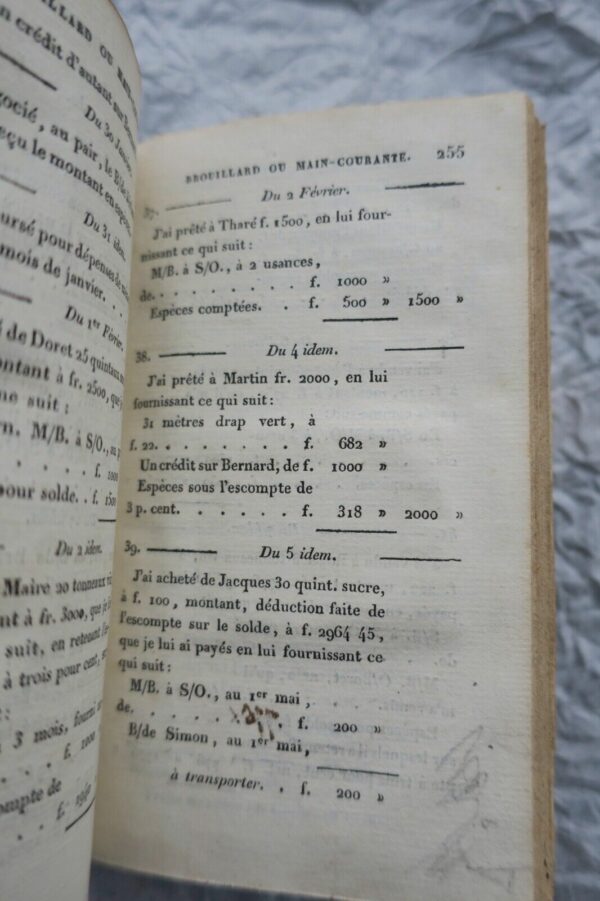 OUILLARD OU MAI
n crédit d'autant sur
Du 30 Janvier.
gocié, au pair, le
eçu le montant en espèces
Du 31 idem
oursé pour dépenses de
mois de janvier. . .
Du 1er Février.
é de Doret 25 quintaux
ontant à fr. 2500, que
me suit :
rn. M/B. à S/O., au
. . . . . f. 1000
pour solde. . f. 1500
Du 2 idem.
Maire 20 tonneaux
nt à fr. 3000, que je
suit, en retenant
à trois pour cent,
3 mois, fourni
. . . . f. 1000
compte de
. . . . f.
BROUILLARD OU MAIN-COURANTE. 255
37. Du 2 Février.
J'ai prêté à Tharé f. 1500, en lui four-
nissant ce qui suit :
M/B. à S/O., à 2 usances,
de. . . . . . . . f. 1000 »
Espèces comptées. . f. 500 » 1500 »
38. Du 4 idem.
J'ai prêté à Martin fr. 2000, en lui
fournissant ce qui suit :
31 mètres drap vert, à
f. 22. . . . . . . . f. 682 »
Un crédit sur Bernard, de f. 1000 »
Espèces sous l'escompte de
3 p. cent. . . . . . f. 318 » 2000 »
39. Du 5 idem.
J'ai acheté de Jacques 30 quint. sucre,
à f. 100, montant, déduction faite de
l'escompte sur le solde, à f. 2964 45,
que je lui ai payés en lui fournissant ce
qui suit :
M/B. à S/O., au 1er mai,
de. . . . . . . . f. 200 »
B/de Simon, au 1er mai,
à transporter. . f. 200 »